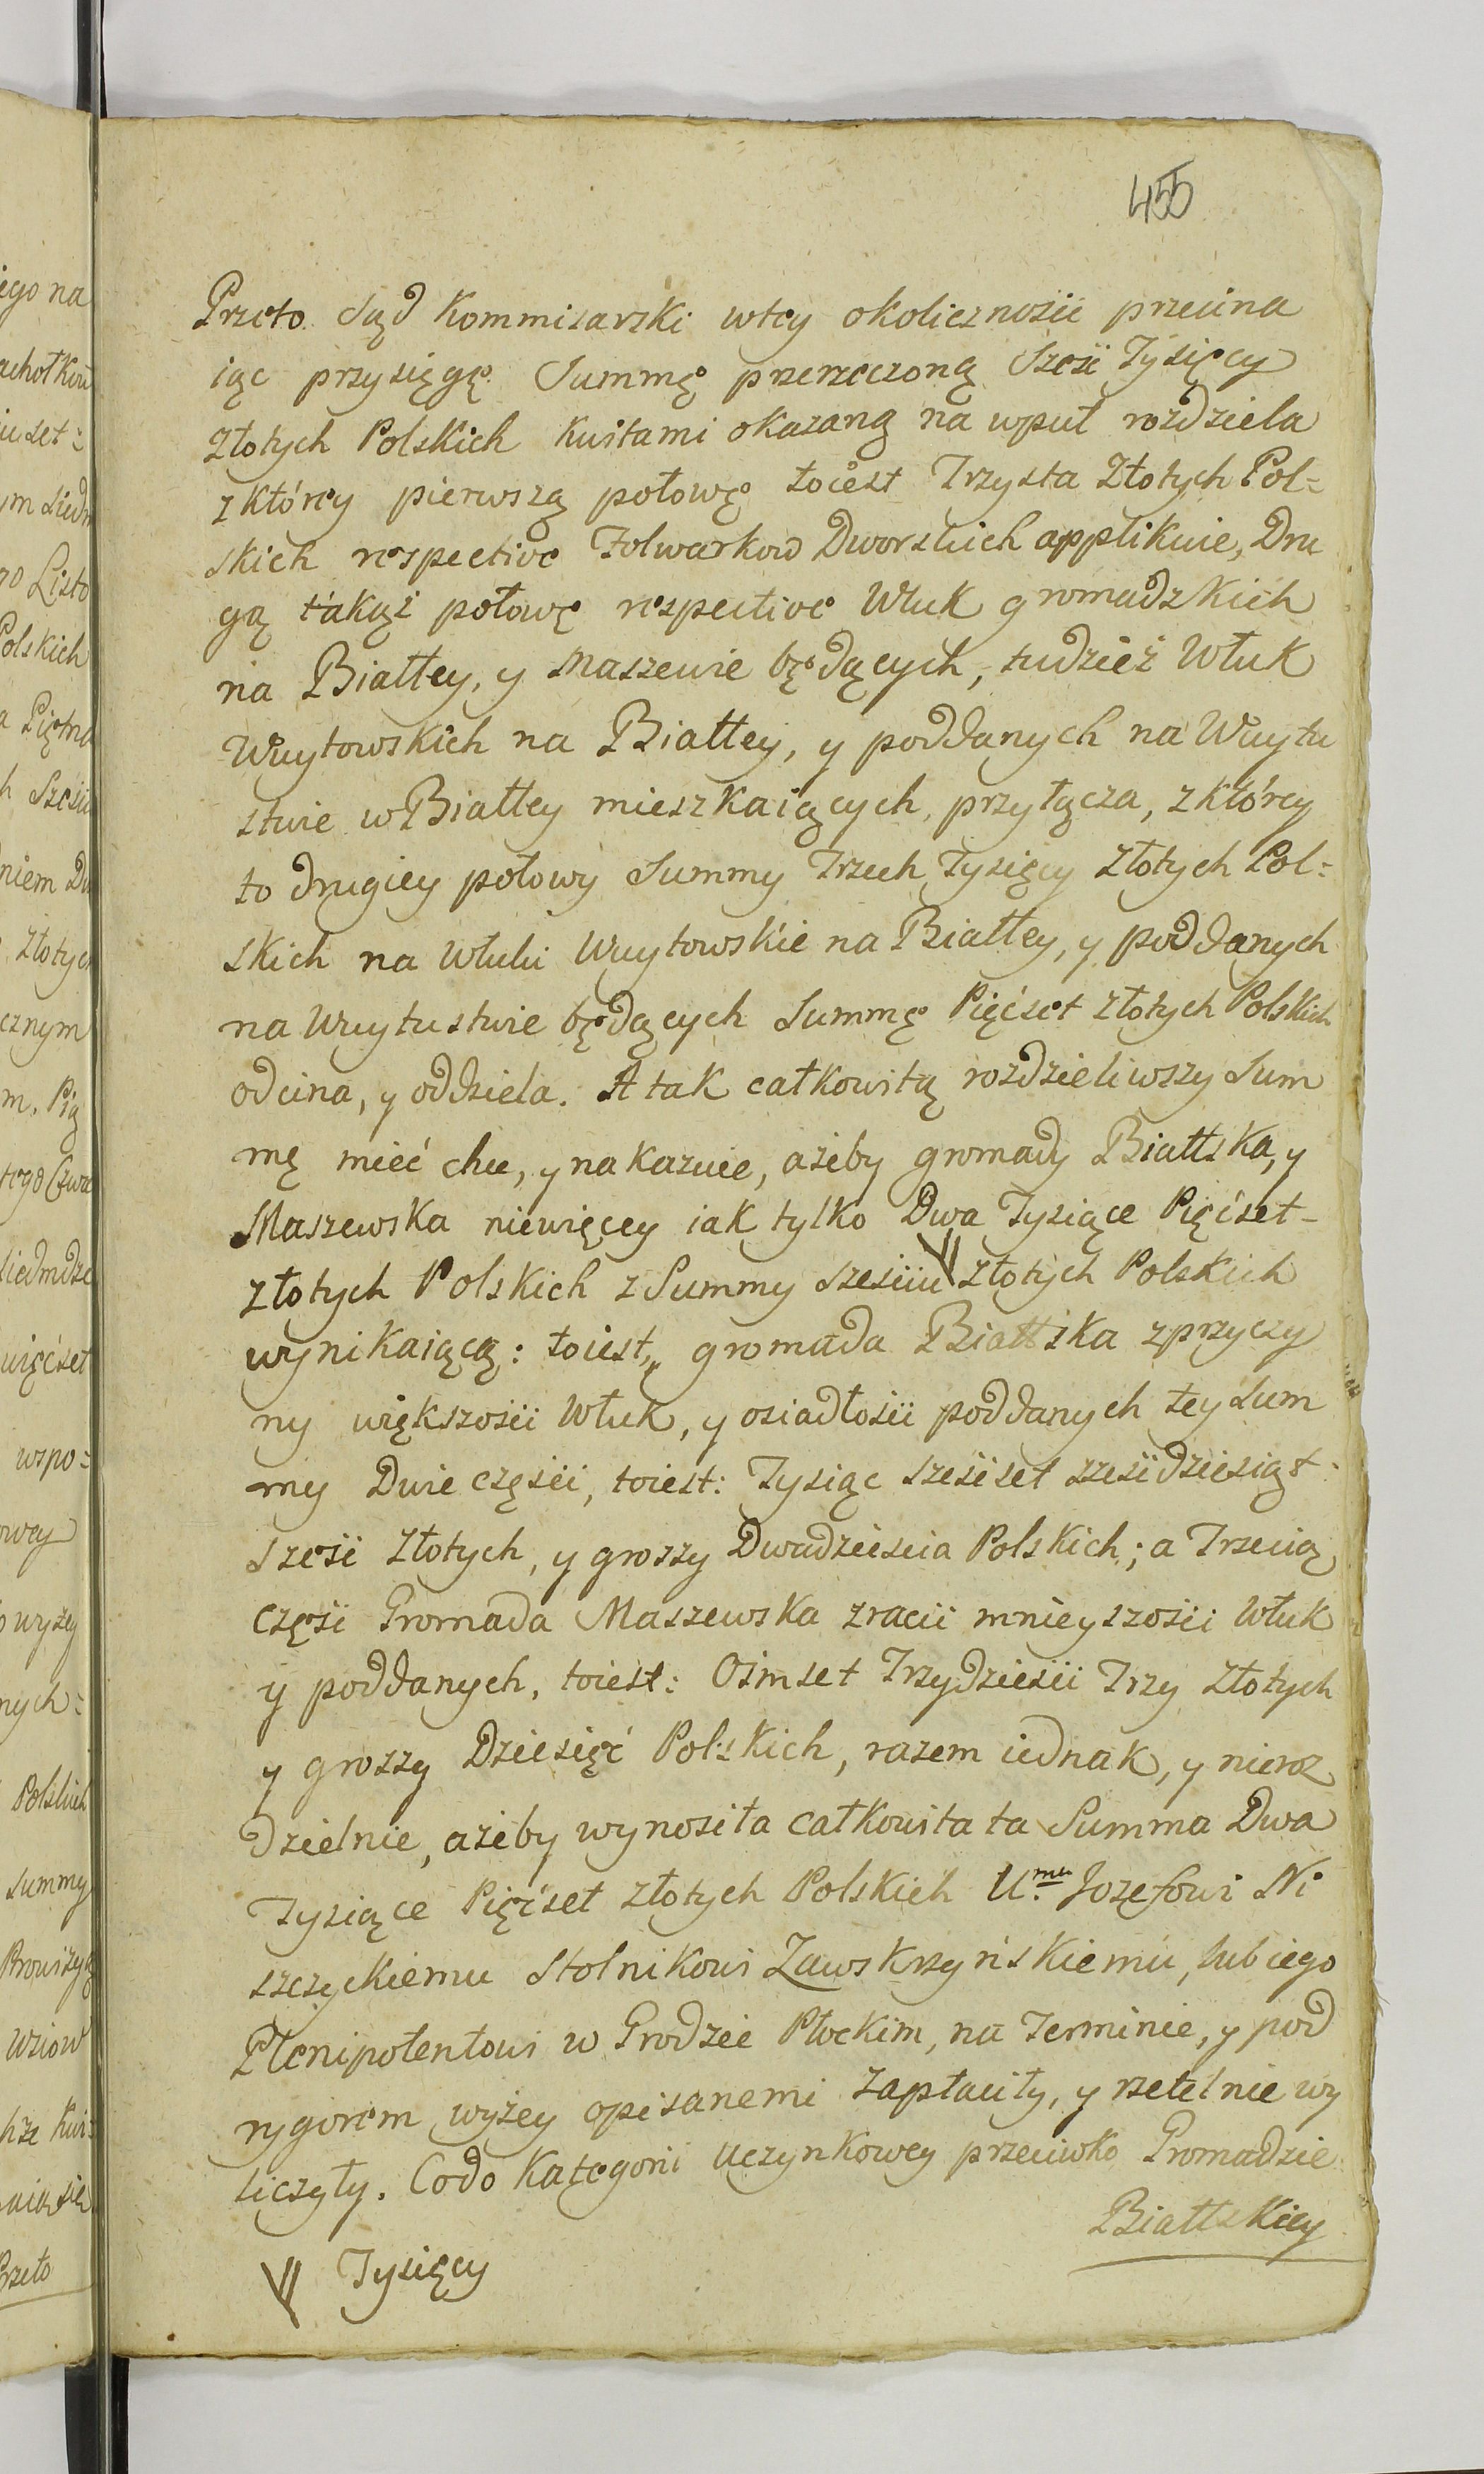 455
Przeto Sąd Kommisarski wtey okolicznosci przecina
iąc przysięgę Summę przerzeczoną Szesc Tysięcy
Złotych Polskich kwitami okazaną na wpuł rozdziela
z którey pierwszą połowę toiest Trzysta Złotych Pol=
skich respective Folwarkow Dworskich applikuie, Dru
gą takąż połowę respective Włuk gromadzkich
na Białłey, y Maszewie będących, tudzież Włuk
Wuytowskich na Białłey, y poddanych na Wuytu
stwie w Białłey mieszkaiących, przyłącza, z którey
to drugiey połowy Summy Trzech Tysięcy Złotych Pol=
skich na Włuki Wuytowskie na Białłey, y poddanych
na Wuytustwie będących Summę Pięćset Złotych Polskich
odcina, y oddziela. A tak całkowitą rozdzieliwszy Sum
mę mieć chce, y nakazuie, ażeby gromady Białłska, y
Maszewska niewięcey iak tylko Dwa Tysiące Pięćset-
złotych Polskich z Summy szesciu \\/ Złotych Polskich
wynikaiącą: toiest, gromada Białłska z przyczy
ny większosci Włuk, y osiadłosci poddanych tey Sum
my Dwie częsci, toiest: Tysiąc szescset szescdziesiąt
szesc Złotych, y groszy Dwadziescia Polskich; a Trzecią
Częsc Gromada Maszewska z racii mnieyszosci Włuk
y poddanych, toiest: Osmset Trzydziesci Trzy Złotych
y groszy Dziesięć Polskich, razem iednak, y nieroz
dzielnie, ażeby wynosiła całkowita ta Summa Dwa
Tysiące Pięćset złotych Polskich U.mu Jozefowi Ni
szczyckiemu Stolnikowi Zawskrzyńskiemu, lub iego
Plenipotentowi w Grodzie Płockim, na Terminie, y pod
rygorem wyżey opisanemi zapłaciły, y rzetelnie wy
liczyły. Codo Kategorii Uczynkowey przeciwko Gromadzie
Białłskiey
\\/ Tysięcy
ego na
Listo
Polskich
niem Du
Złotych
cznym
więćset
wspo=
wyżey
nych=
Polskich
Summy
Przeto